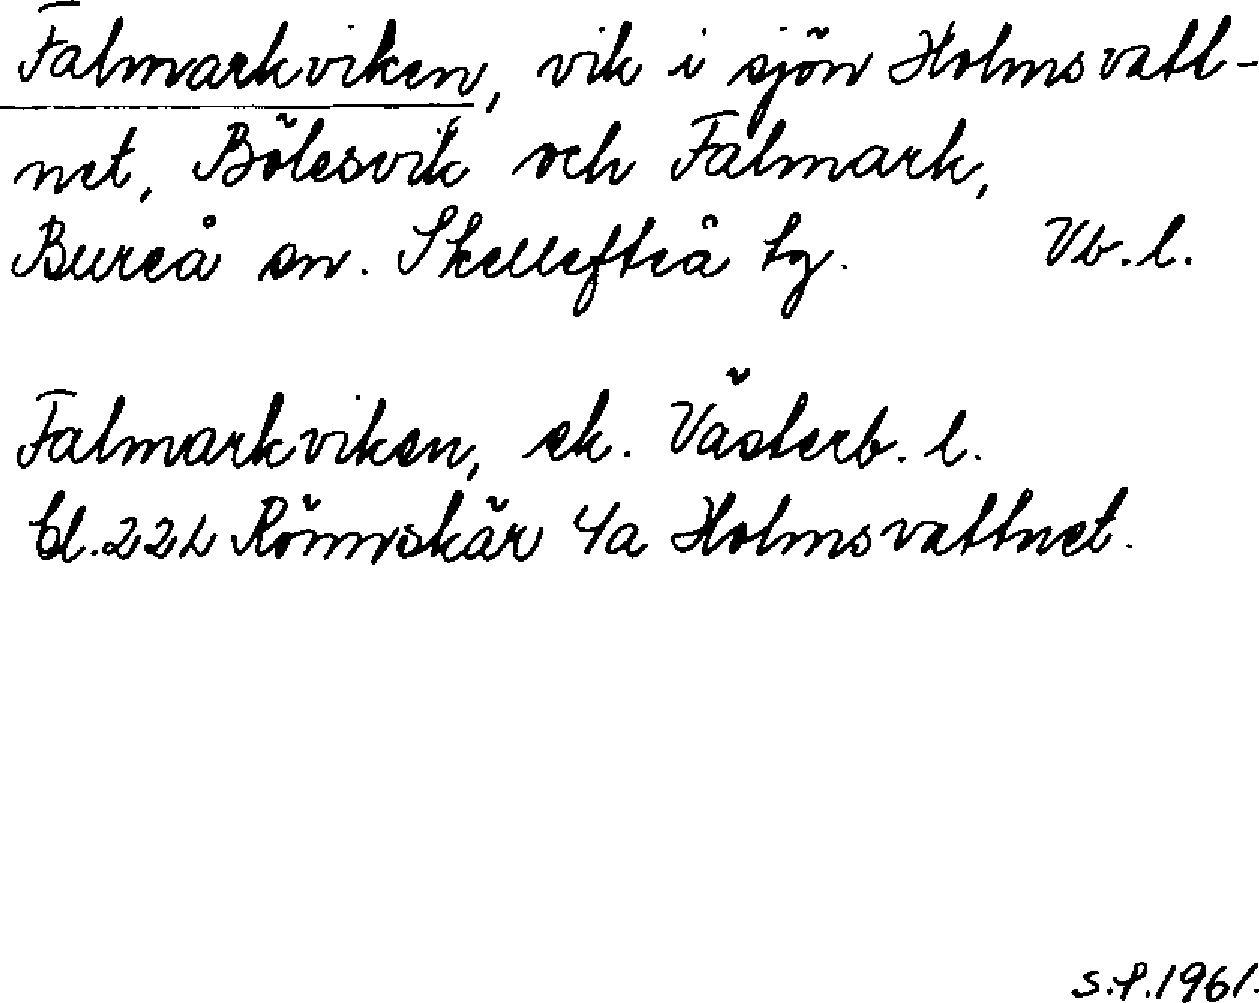 Falmarkviken, vik i sjön Holmsvatt-
net, Bölesvik och Falmark,
Bureå sn. Skellefteå tg. Vb.l.
Falmarkviken, ek. Västerb. l.
bl. 22L Rönnskär 4a Holmsvattnet.
S.P.1961.